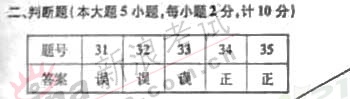 二、判断题(本大题5小题,每小题2分,计10分)
题号 31 32 33 34 35
答案 误 误 误 正 正
新浪考试